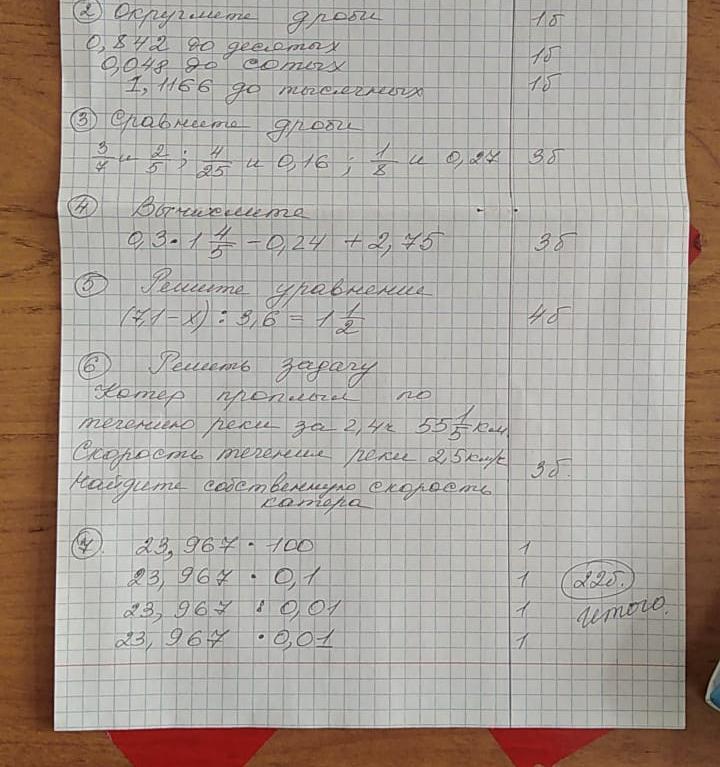 ② Округлите дроби 1б
0,842 до десятых 1б
0,048 до сотых 1б
1,1166 до тысячных
③ Сравните дроби
3/7 и 2/5 ; 4/25 и 0,16 ; 1/8 и 0,27 3б
④ Вычислите
0,3 · 1 4/5 - 0,24 + 2,75 3б
⑤ Решите уравнение
(7,1-х) : 3,6 = 1 1/2 4б
⑥ Решить задачу
Катер проплыл по
течению реки за 2,4ч 55 1/5 км.
Скорость течения реки 2,5км/ч
Найдите собственную скорость 3б.
катера
⑦. 23,967 · 100 1
23,967 · 0,1 1 22б.
23,967 : 0,01 1 итого.
23,967 · 0,01 1